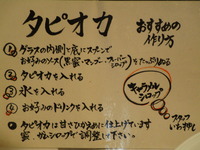 タピオカ
おすすめの
作り方
① グラスの内側や底にスプーンで
お好みのソース(黒蜜・マップル・スーパーシロップ)をたっぷり塗る
② タピオカを入れる
③ 氷を入れる
④ お好みのドリンクを入れる
● タピオカは甘さひかえめに仕上げています
蜜、ガムシロップで調整して下さい。
キャラメル
シロップ
スタッフ
いち押し